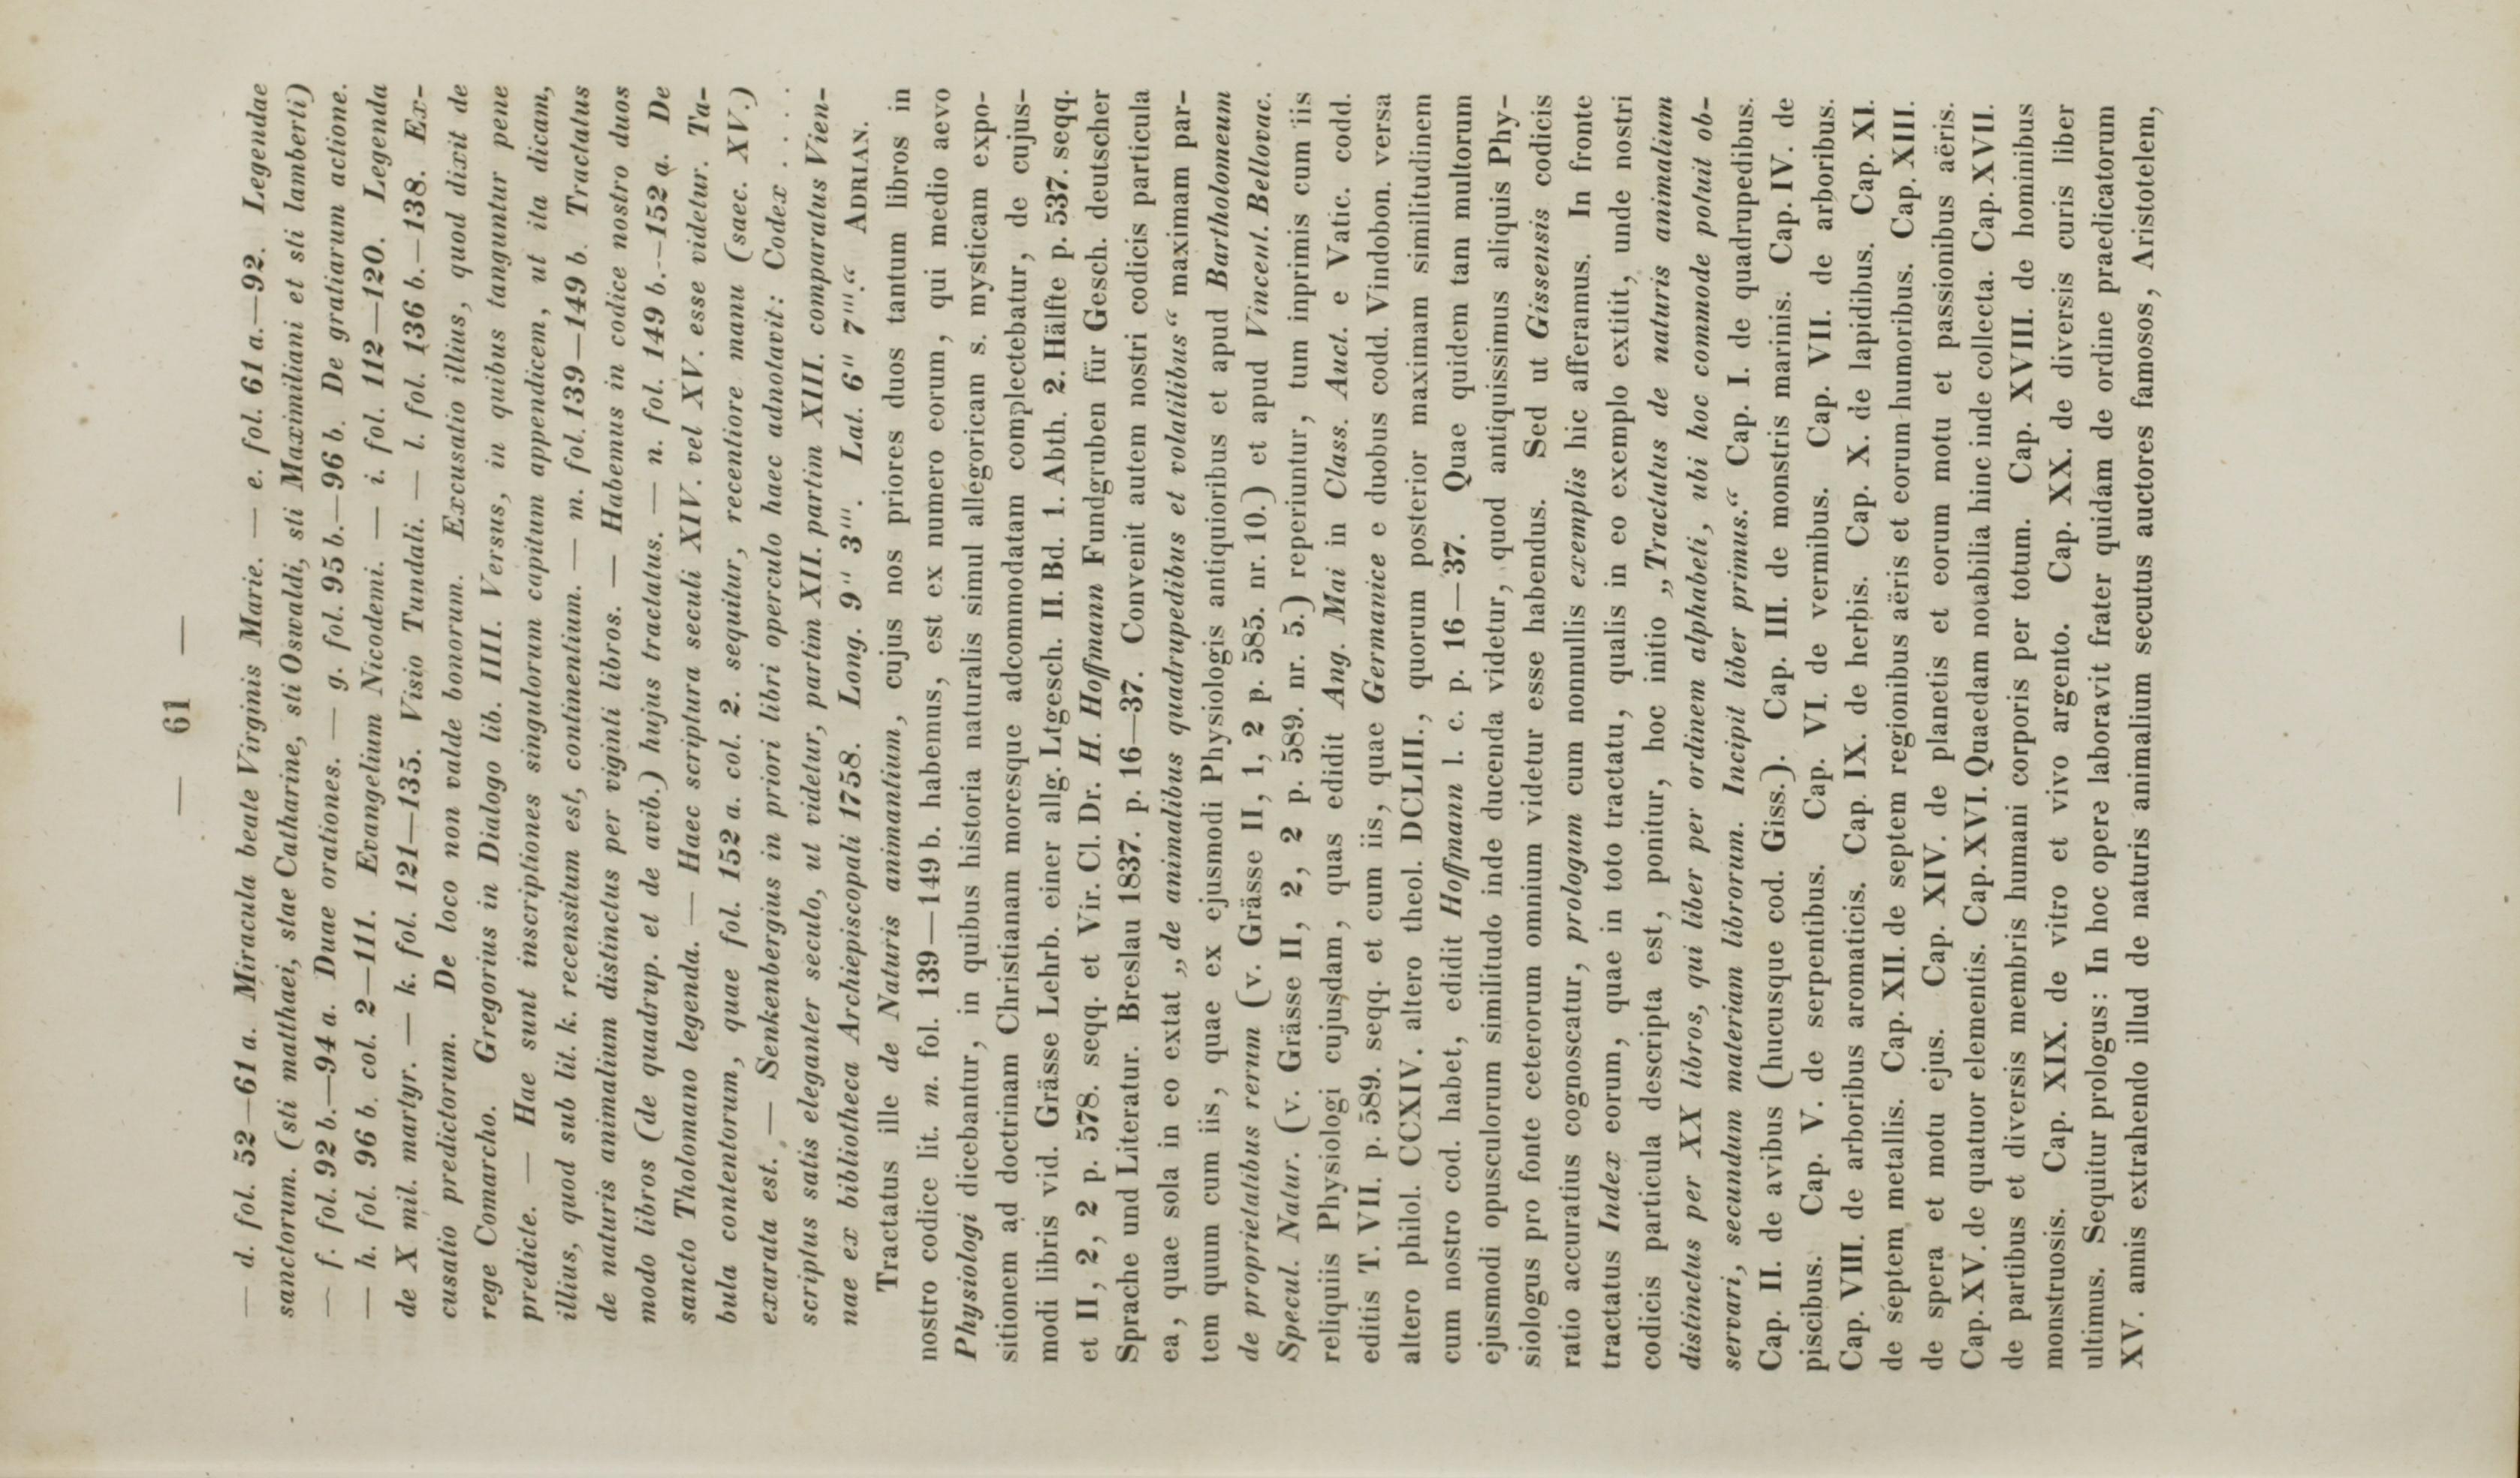 — 61 —
— d. fol. 52—61 a. Miracula beate Virginis Marie. — e. fol. 61 a.—92. Legendae
sanctorum. (sti matthaei, stae Catharine, sti Oswaldi, sti Maximiliani et sti lamberti)
— f. fol. 92 b.—94 a. Duae orationes. — g. fol. 95 b.—96 b. De gratiarum actione.
— h. fol. 96 b. col. 2—111. Evangelium Nicodemi. — i. fol. 112—120. Legenda
de X mil. martyr. — k. fol. 121—135. Visio Tundali. — l. fol. 136 b.—138. Ex-
cusatio predictorum. De loco non valde bonorum. Excusatio illius, quod dixit de
rege Comarcho. Gregorius in Dialogo lib. IIII. Versus, in quibus tanguntur pene
predicte. — Hae sunt inscriptiones singulorum capitum appendicem, ut ita dicam,
illius, quod sub lit. k. recensitum est, continentium. — m. fol. 139—149 b. Tractatus
de naturis animalium distinctus per viginti libros. — Habemus in codice nostro duos
modo libros (de quadrup. et de avib.) hujus tractatus. — n. fol. 149 b.—152 a. De
sancto Tholomano legenda. — Haec scriptura seculi XIV. vel XV. esse videtur. Ta-
bula contentorum, quae fol. 152 a. col. 2. sequitur, recentiore manu (saec. XV.)
exarata est. — Senkenbergius in priori libri operculo haec adnotavit: Codex . . . .
scriptus satis eleganter seculo, ut videtur, partim XII. partim XIII. comparatus Vien-
nae ex bibliotheca Archiepiscopali 1758. Long. 9" 3"'. Lat. 6" 7"'.“ ADRIAN.
Tractatus ille de Naturis animantium, cujus nos priores duos tantum libros in
nostro codice lit. m. fol. 139—149 b. habemus, est ex numero eorum, qui medio aevo
Physiologi dicebantur, in quibus historia naturalis simul allegoricam s. mysticam expo-
sitionem ad doctrinam Christianam moresque adcommodatam complectebatur, de cujus-
modi libris vid. Grässe Lehrb. einer allg. Ltgesch. II. Bd. 1. Abth. 2. Hälfte p. 537. seqq.
et II, 2, 2 p. 578. seqq. et Vir. Cl. Dr. H. Hoffmann Fundgruben für Gesch. deutscher
Sprache und Literatur. Breslau 1837. p. 16—37. Convenit autem nostri codicis particula
ea, quae sola in eo extat „de animalibus quadrupedibus et volatilibus“ maximam par-
tem quum cum iis, quae ex ejusmodi Physiologis antiquioribus et apud Bartholomeum
de proprietatibus rerum (v. Grässe II, 1, 2 p. 585. nr. 10.) et apud Vincent. Bellovac.
Specul. Natur. (v. Grässe II, 2, 2 p. 589. nr. 5.) reperiuntur, tum inprimis cum iis
reliquiis Physiologi cujusdam, quas edidit Ang. Mai in Class. Auct. e Vatic. codd.
editis T. VII. p. 589. seqq. et cum iis, quae Germanice e duobus codd. Vindobon. versa
altero philol. CCXIV. altero theol. DCLIII., quorum posterior maximam similitudinem
cum nostro cod. habet, edidit Hoffmann l. c. p. 16—37. Quae quidem tam multorum
ejusmodi opusculorum similitudo inde ducenda videtur, quod antiquissimus aliquis Phy-
siologus pro fonte ceterorum omnium videtur esse habendus. Sed ut Gissensis codicis
ratio accuratius cognoscatur, prologum cum nonnullis exemplis hic afferamus. In fronte
tractatus Index eorum, quae in toto tractatu, qualis in eo exemplo extitit, unde nostri
codicis particula descripta est, ponitur, hoc initio „Tractatus de naturis animalium
distinctus per XX libros, qui liber per ordinem alphabeti, ubi hoc commode potuit ob-
servari, secundum materiam librorum. Incipit liber primus.“ Cap. I. de quadrupedibus.
Cap. II. de avibus (hucusque cod. Giss.). Cap. III. de monstris marinis. Cap. IV. de
piscibus. Cap. V. de serpentibus. Cap. VI. de vermibus. Cap. VII. de arboribus.
Cap. VIII. de arboribus aromaticis. Cap. IX. de herbis. Cap. X. de lapidibus. Cap. XI.
de septem metallis. Cap. XII. de septem regionibus aëris et eorum humoribus. Cap. XIII.
de spera et motu ejus. Cap. XIV. de planetis et eorum motu et passionibus aëris.
Cap. XV. de quatuor elementis. Cap. XVI. Quaedam notabilia hinc inde collecta. Cap. XVII.
de partibus et diversis membris humani corporis per totum. Cap. XVIII. de hominibus
monstruosis. Cap. XIX. de vitro et vivo argento. Cap. XX. de diversis curis liber
ultimus. Sequitur prologus: In hoc opere laboravit frater quidam de ordine praedicatorum
XV. annis extrahendo illud de naturis animalium secutus auctores famosos, Aristotelem,